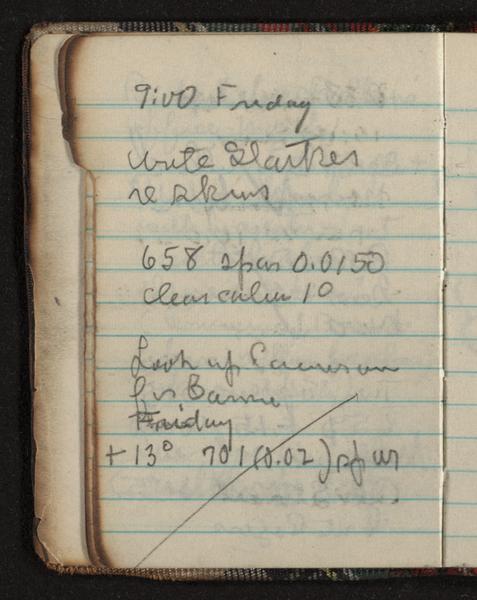 9:00 Friday
write
re skins
658 spcs 0.0150
clear calm 10
Look up Cameron
for
Friday
+ 13° 701 (0.02)